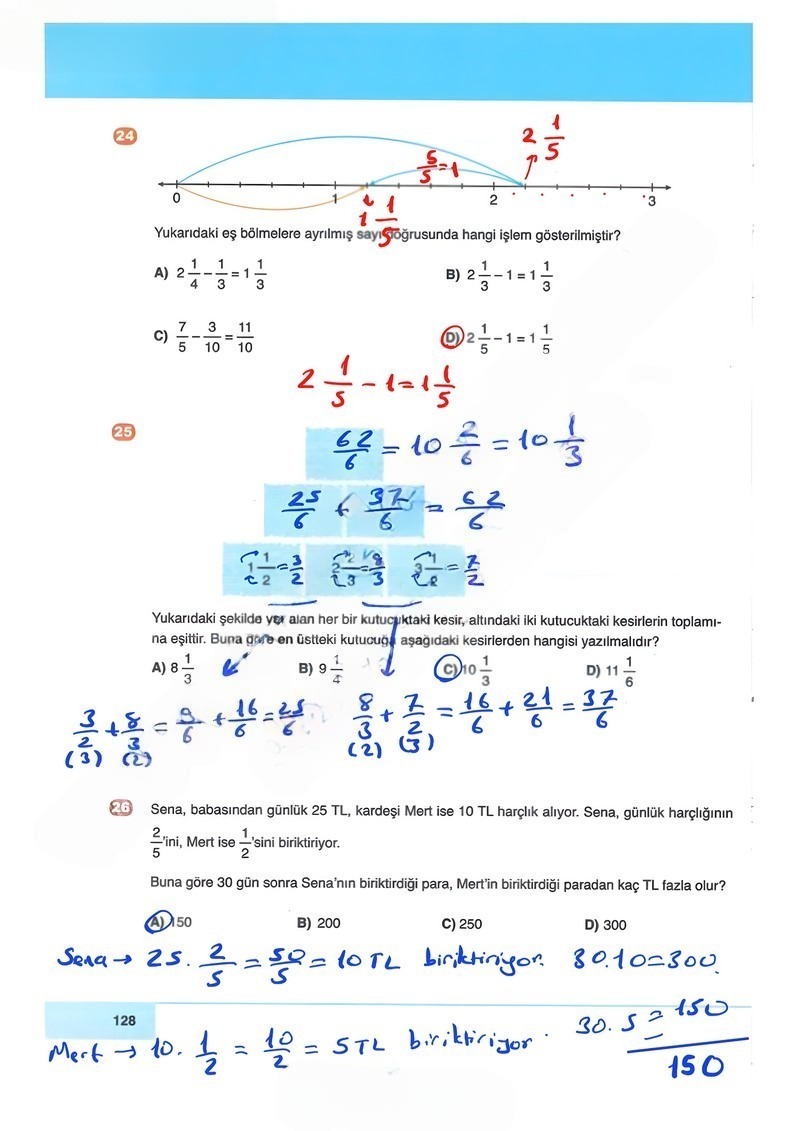 24
2 1/5
5/5=1
0 1 2 3
1 1/5
Yukarıdaki eş bölmelere ayrılmış sayı doğrusunda hangi işlem gösterilmiştir?
A) 2 1/4 - 1/3 = 1 1/3 B) 2 1/3 - 1 = 1 1/3
C) 7/5 - 3/10 = 11/10 D) 2 1/5 - 1 = 1 1/5
2 1/5 - 1 = 1 1/5
25
62/6 = 10 2/6 = 10 1/3
25/6 + 37/6 = 62/6
1 1/2 = 3/2 2 2/3 = 8/3 3 1/2 = 7/2
Yukarıdaki şekilde yer alan her bir kutucuktaki kesir, altındaki iki kutucuktaki kesirlerin toplamı-
na eşittir. Buna göre en üstteki kutucuğa aşağıdaki kesirlerden hangisi yazılmalıdır?
A) 8 1/3 B) 9 1/4 C) 10 1/3 D) 11 1/6
3/2 + 8/3 = 9/6 + 16/6 = 25/6 8/3 + 7/2 = 16/6 + 21/6 = 37/6
(3) (2) (2) (3)
26 Sena, babasından günlük 25 TL, kardeşi Mert ise 10 TL harçlık alıyor. Sena, günlük harçlığının
2/5'ini, Mert ise 1/2'sini biriktiriyor.
Buna göre 30 gün sonra Sena'nın biriktirdiği para, Mert'in biriktirdiği paradan kaç TL fazla olur?
A) 150 B) 200 C) 250 D) 300
Sena → 25 . 2/5 = 50/5 = 10 TL biriktiriyor. 30.10=300
128
Mert → 10 . 1/2 = 10/2 = 5TL biriktiriyor. 30.5 = 150
150